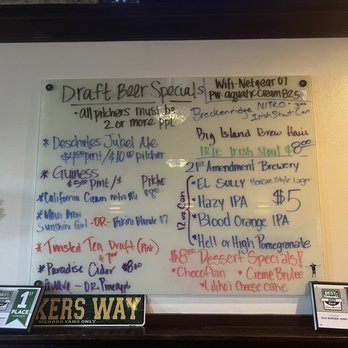 Draft Beer Specials
• all pitchers must be
2 or more ppl
* Deschutes Jubel Ale
pint/$10.00 pitcher
* Guiness
pint/$
* California Cream
* Maui Brew
Sunshine Girl -OR- Bikini Blonde $7
* Twisted Tea Draft (Pint)
$7.00
* Paradise Cider $8.00
Guava - OR
Wifi - Netgear 07
PW:
Breckenridge NITRO
Irish Stout Can
Big Island Brew Haus
IRIE Irish Stout $8.00
21st Amendment Brewery
12oz Can
EL SULLY Mexican Style Lager
Hazy IPA
$5
Blood Orange IPA
Hell or High Pomegranate
$8.00 Dessert Specials!!
• Chocoflan • Creme Brulee
• Lilikoi Cheese cake
1ST
PLACE
KERS WAY
FANS ONLY
BEST